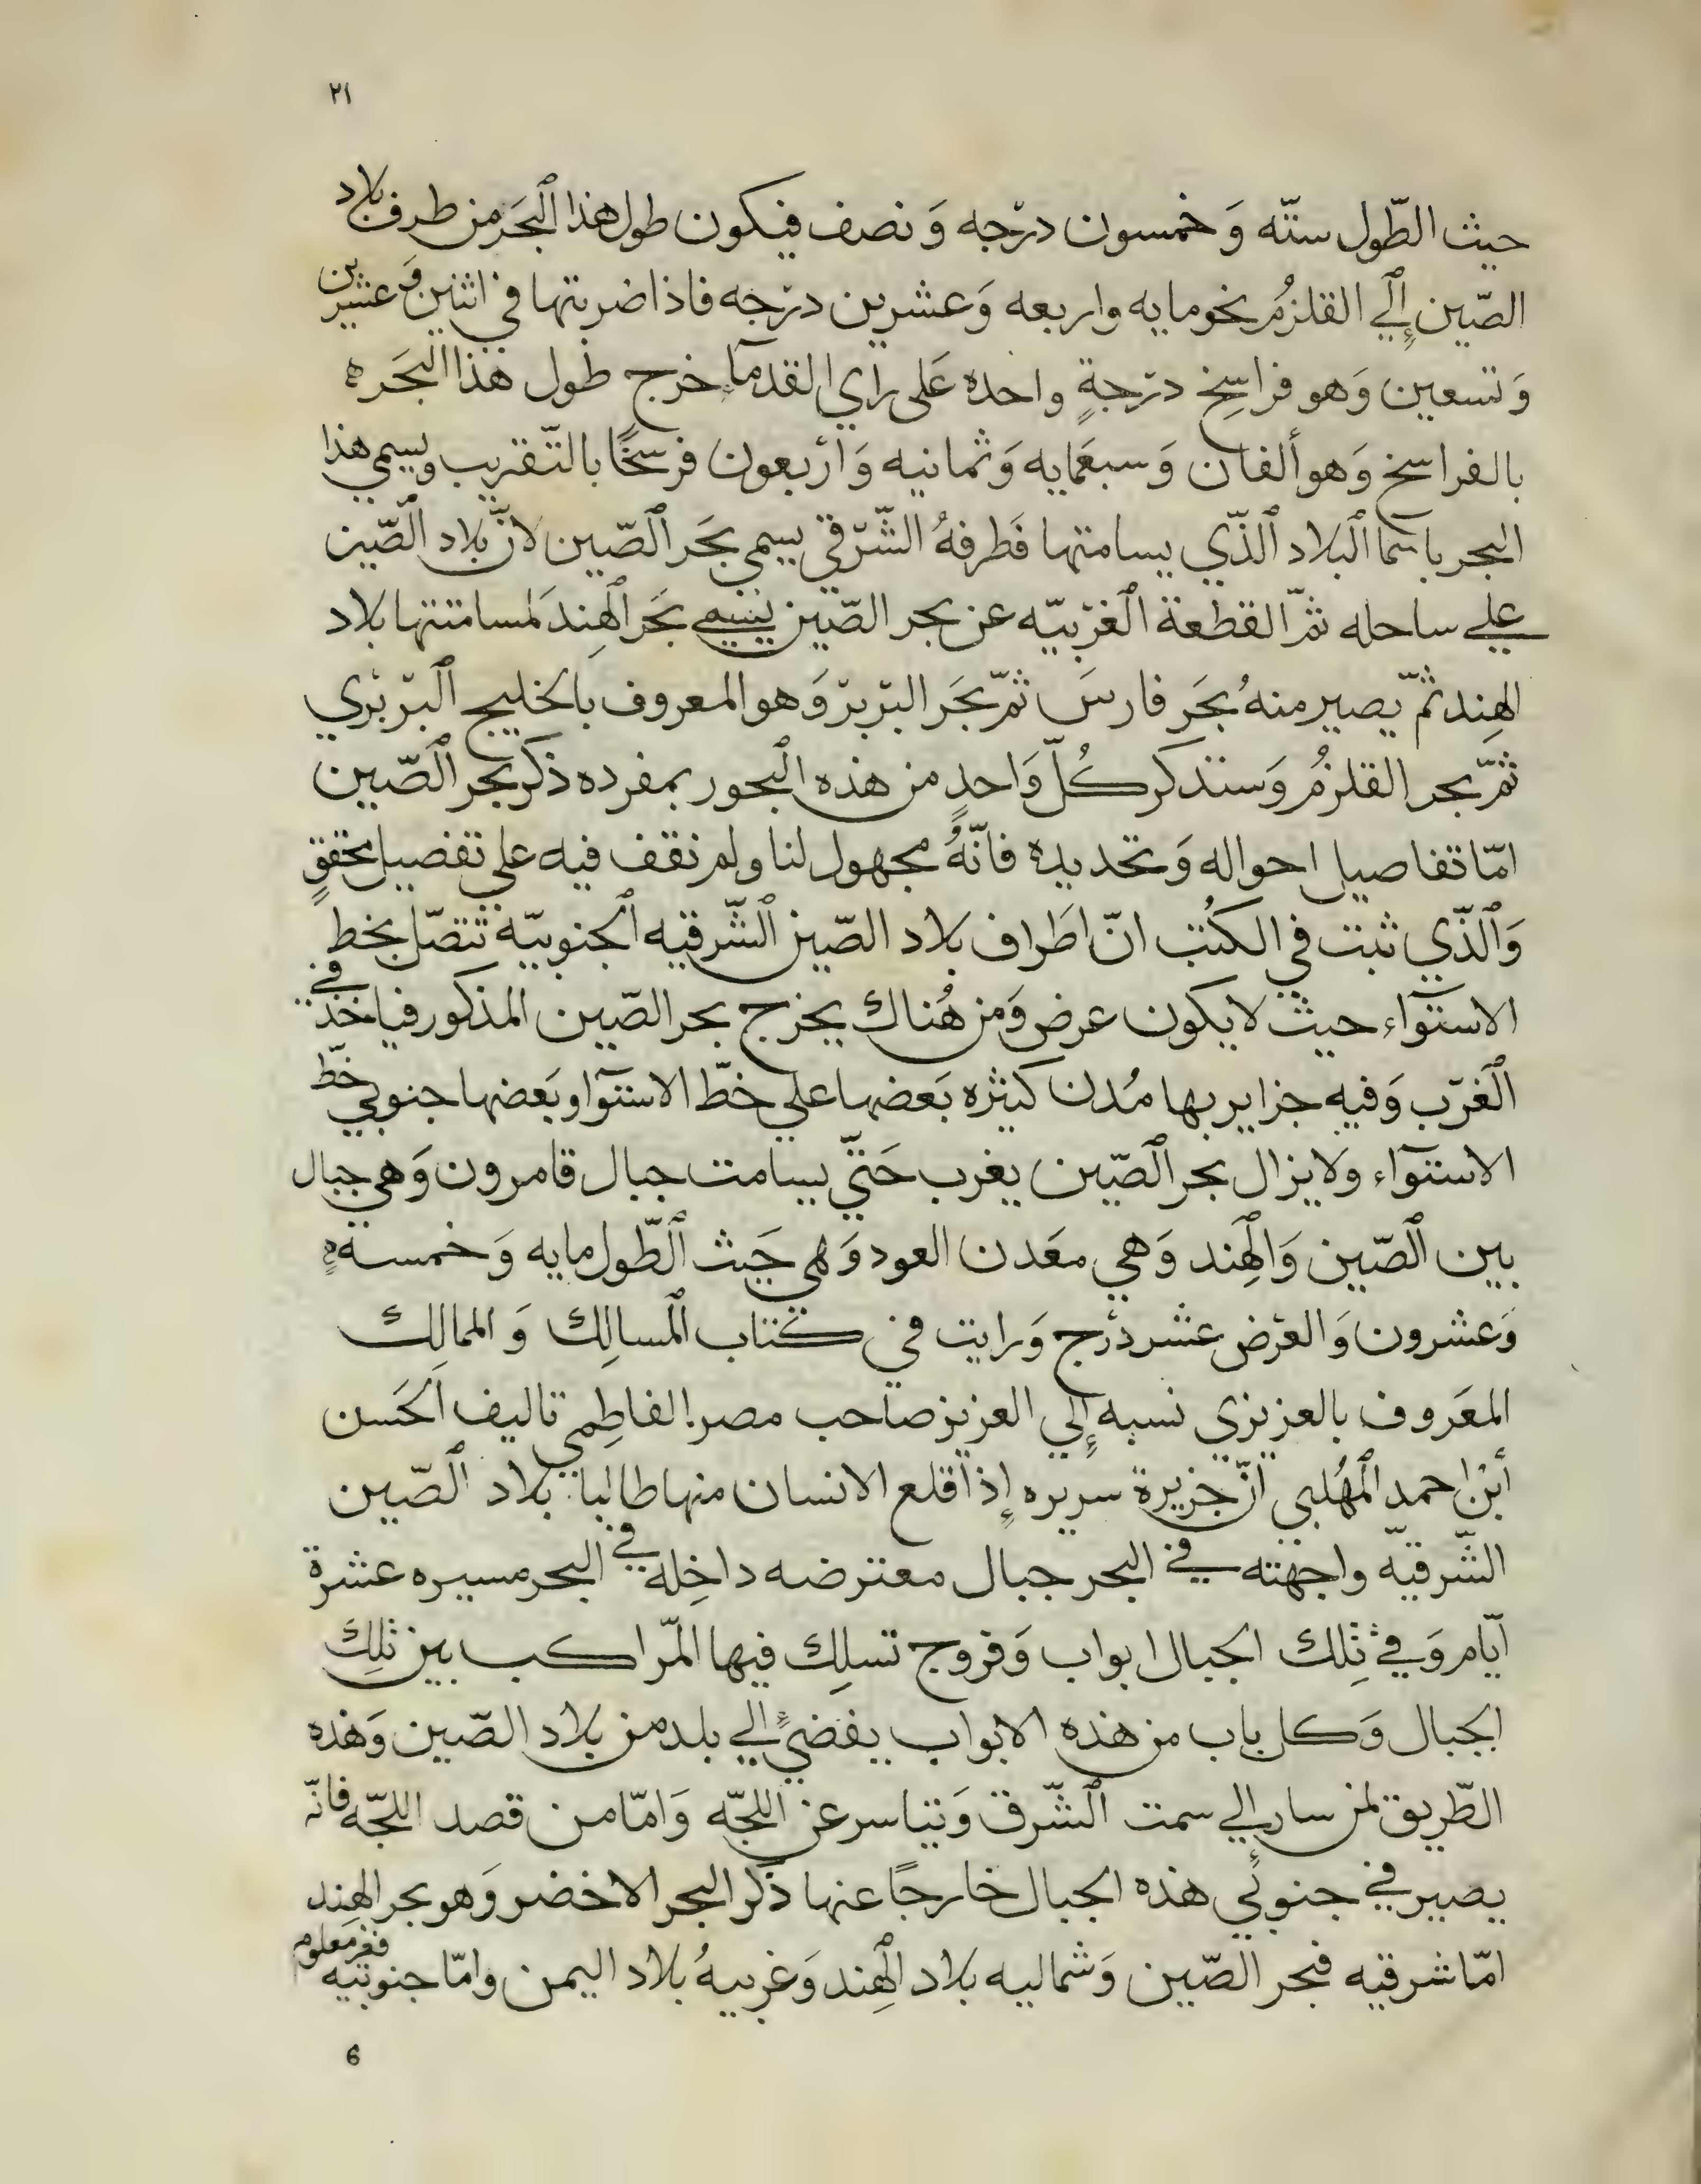 ٢١
حيث الطّول ستّه وَ خمسون درْجه وَ نصف فيكون طول هذا ٱلبَحَر من طرف بلاد
الصّين إِلي القلزمُ نحو مايه واربعه وَعشرين درْجه فاذا ضربتها في اثنين وَ عشرين
وَ تسعين وَهو فراسِخ درْجةٍ واحده عَلى راي القدمآء خرج طول هذا البَحَر ه
بالفراسخ وَهو ألفان وَ سبعمايه وَ ثمانيه وَ ارْبعون فرسخًا بالتّقريب ويسمي هذا
البحر باسٓما ٱلبلاد ٱلذّي يسامتها فَطرفهُ الشّرْقي يسمي بحَر ٱلصّين لانّ بلاد ٱلصّين
علي ساحله ثمّ القطعة ٱلغرْبيّه عن بحر الصّين يسمي بحَر ٱلهِند لمسامتتها بلاد
الهِند ثمّ يصير منهُ بحَر فارسَ ثمّ بحَر البرْبرْ وَ هو المعروف بالخليج ٱلبرْبرْي
ثمّ بحر القلزمُ وَ سنذكر كُلّ وَاحدٍ من هذه ٱلبحور بمفرده ذكر بحر ٱلصّين
امّا تفاصيل احواله وَ تحديده فانّهُ مجهول لنا ولم نقف فيه علي تفصيل محققٍ
وَٱلذّي ثبت في الكتُب انّ اطَراف بلاد الصّين ٱلشّرقيه ٱلجنوبيّه تتصّل بخط
الاستوٓاء حيث لايكون عرض وَمن هُناك يخرج بحر الصّين المذكور فياخذ في
ٱلغَرْب وَفيه جزاير بها مُدن كثيره بَعضها علي خطّ الاستوٓا وبَعضها جنوبي خطّ
الاستوٓاء ولايزال بحر ٱلصّين يغرب حَتيّ يسامت جبال قامرون وَهي جبال
بين ٱلصّين وَٱلهِند وَهي معَدن العود وَهي حَيث ٱلطّول مايه وَ خمسه
وَعشرون وَ العرْض عشر درْج وَ رايت في كتاب ٱلمسالِك وَ الممالِك
المعَروف بالعزيزي نسبه إِلي العزيز صاحب مصر الفاطِمي تاليف الحَسن
أبْن احمد ٱلمُهلبي انّ جزيرة سريره إِذا قلع الانسان منها طالبا بلاد ٱلصّين
الشّرقيّه واجهته في البحر جبال معترضه داخِلة في البحر مسيره عشرة
ايّام وَ في تِلك الجبال ابواب وَ فروج تسلِك فيها المرّاكب بين تلِك
الجبال وَكل باب من هذه الابواب يفضيً الي بلد من بلاد الصّين وَهذه
الطّريق لمن سار إلي سمت ٱلشّرق وَ يتياسر عن اللجّه وَ امّا من قصد اللجّه فانّه
يصير في جنوبي هذه الجبال خارجًا عنها ذكر البحر الاخضر وَهو بحر الهِند
امّا شرقيه فبحر الصّين وَ شماليه بلاد ٱلهِند وَغربيهُ بلاد اليمن وامّا جنوبيه فغير معلوم
6